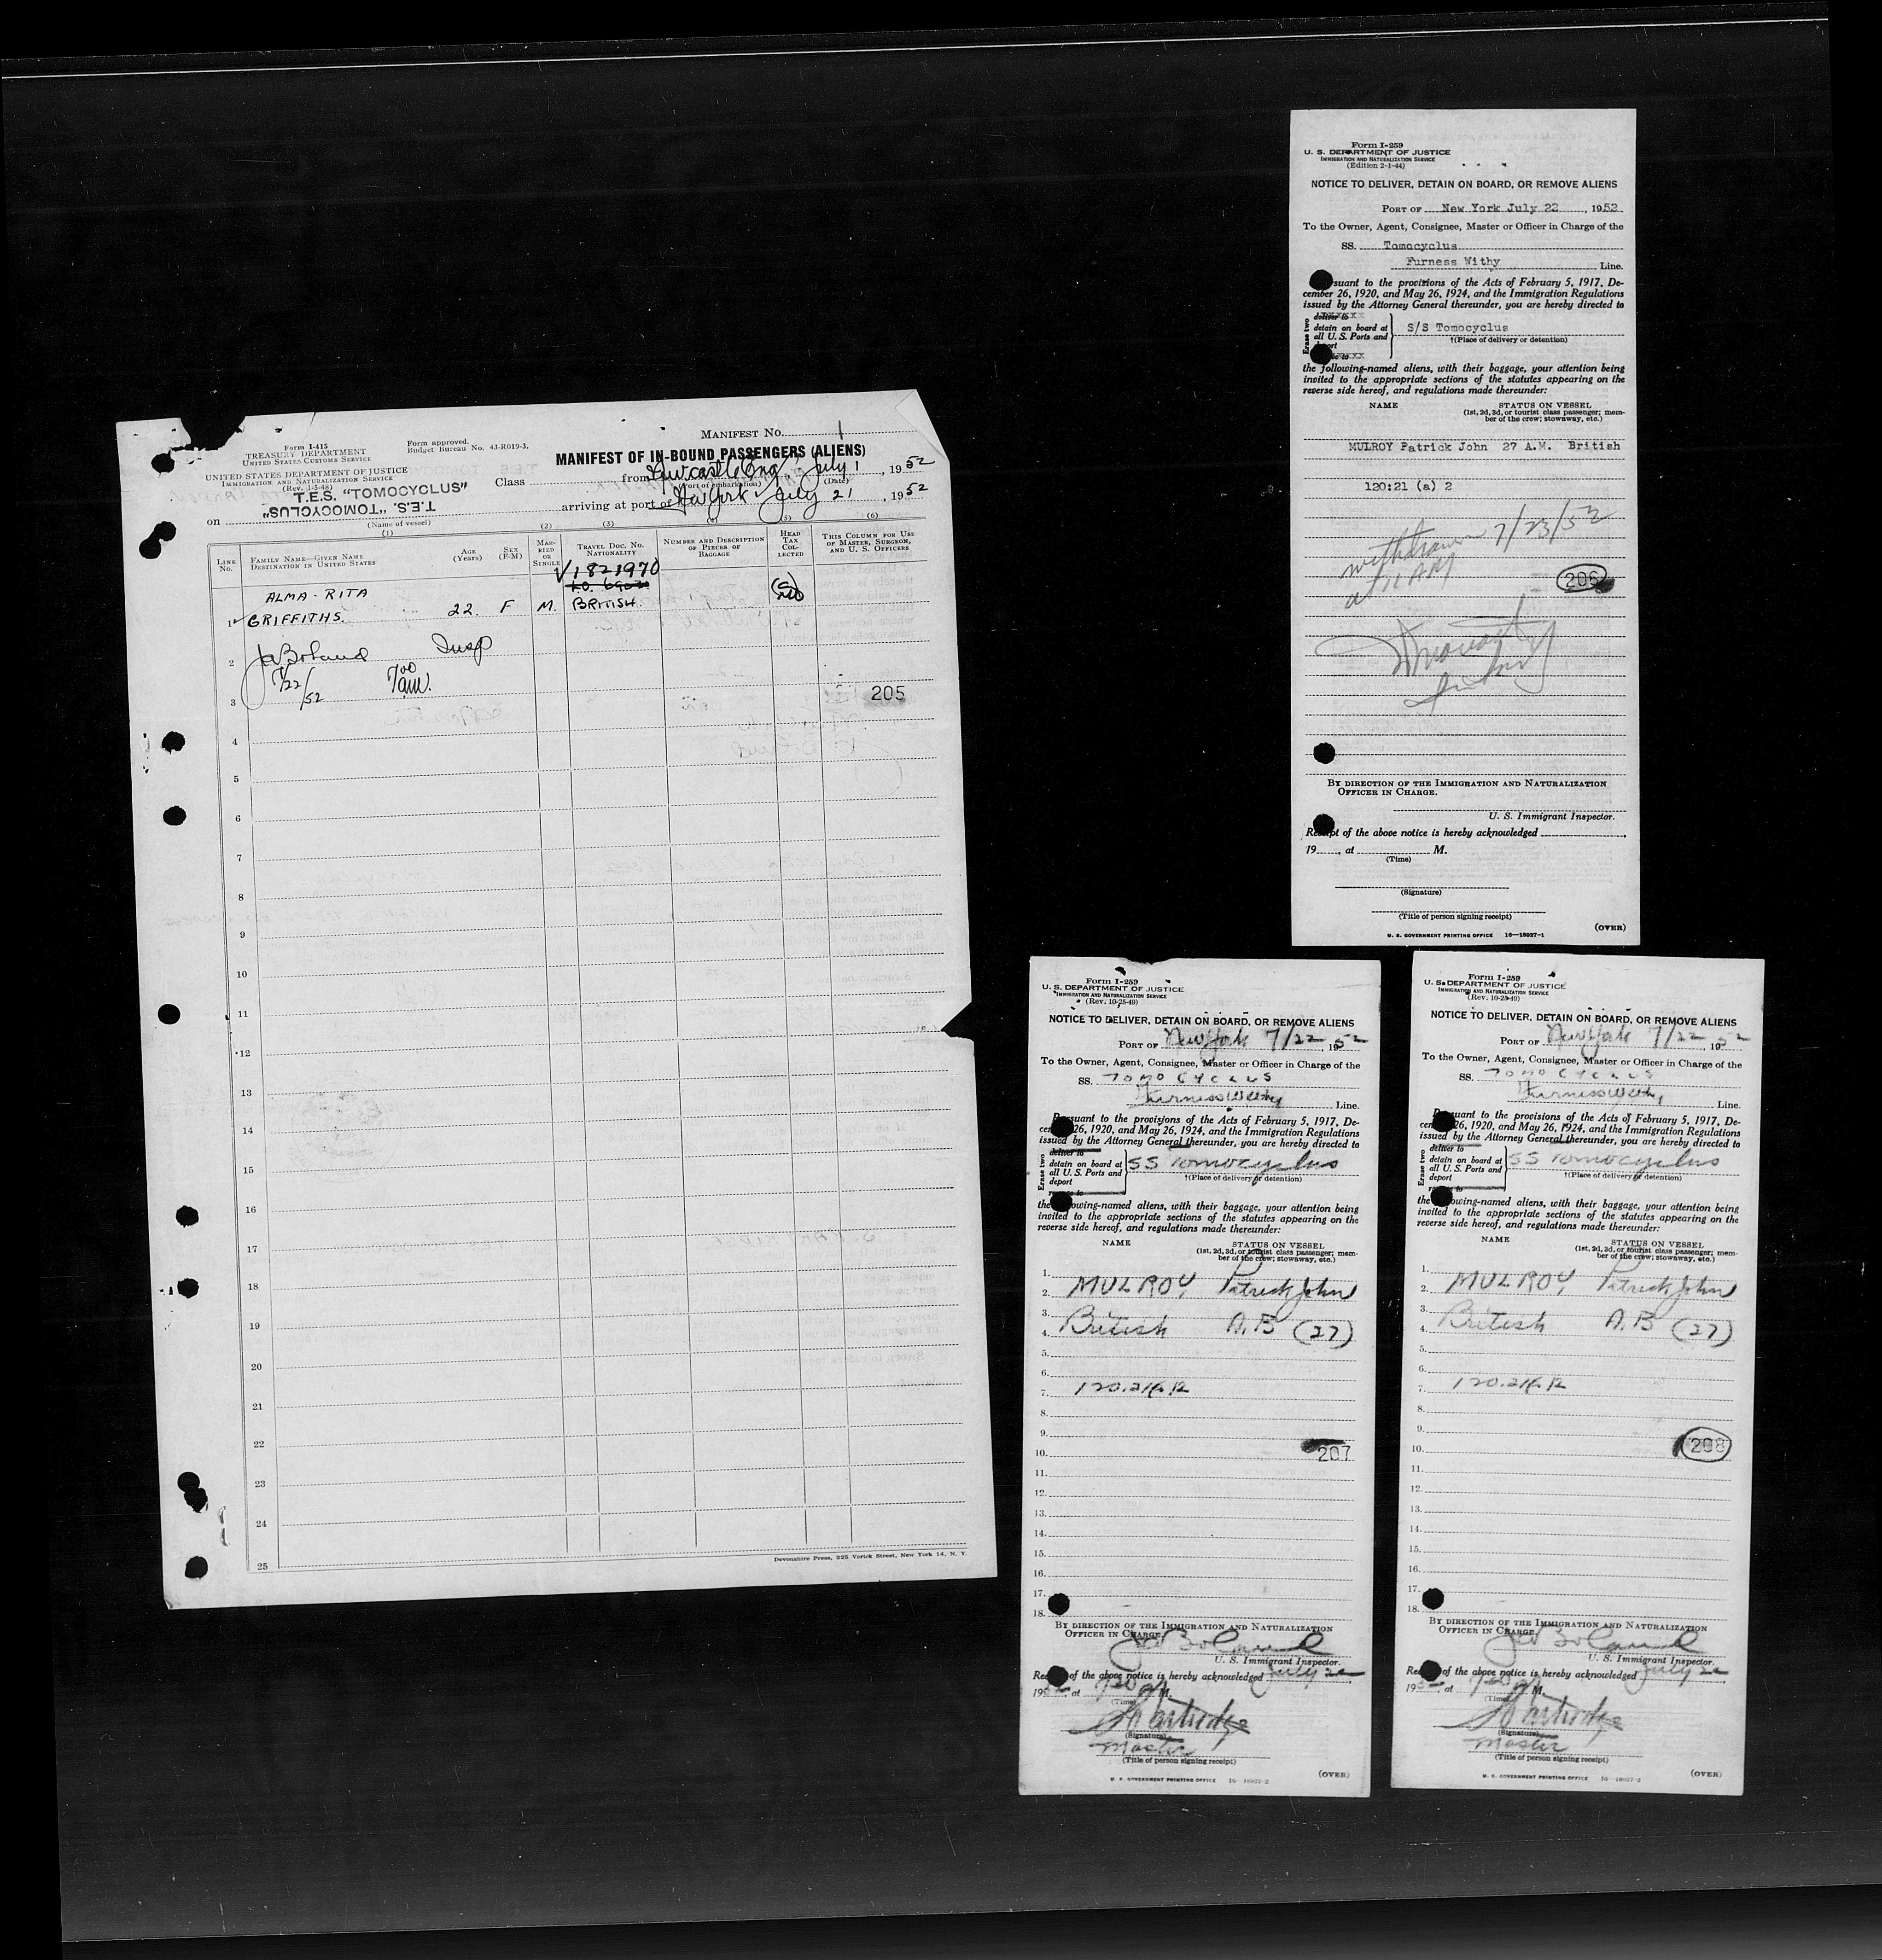 Form I-415
TREASURY DEPARTMENT
UNITED STATES CUSTOMS SERVICE
UNITED STATES DEPARTMENT OF JUSTICE
IMMIGRATION AND NATURALIZATION SERVICE
(Rev. 1-5-48)
Form approved.
Budget Bureau No. 43-R019-3.
MANIFEST NO. 1
MANIFEST OF IN-BOUND PASSENGERS (ALIENS)
Class from Newcastle Eng July 1, 1952
(Port of embarkation) (Date)
T.E.S. "TOMOCYCLUS"
T.E.S. "TOMOCYCLUS"
on
(Name of vessel)
arriving at port of New York July 21, 1952
(1) (2) (3) (4) (5) (6)
LINE No.
FAMILY NAME—GIVEN NAME
DESTINATION IN UNITED STATES
AGE (Years)
SEX (F-M)
MARRIED OR SINGLE
TRAVEL DOC. NO. NATIONALITY
NUMBER AND DESCRIPTION OF PIECES OF BAGGAGE
HEAD TAX COLLECTED
THIS COLUMN FOR USE OF MASTER, SURGEON, AND U. S. OFFICERS
V1821970
ALMA - RITA
1 GRIFFITHS. 22. F M. BRITISH.
2 JW Boland Insp
7/22/52 7 00 am.
3 205
4
5
6
7
8
9
10
11
12
13
14
15
16
17
18
19
20
21
22
23
24
25
Devonshire Press, 225 Varick Street, New York 14, N. Y.
Form I-259
U. S. DEPARTMENT OF JUSTICE
IMMIGRATION AND NATURALIZATION SERVICE
(Edition 2-1-44)
NOTICE TO DELIVER, DETAIN ON BOARD, OR REMOVE ALIENS
PORT OF New York July 22, 1952
To the Owner, Agent, Consignee, Master or Officer in Charge of the
SS. Tomocyclus
Furness Withy Line.
suant to the provisions of the Acts of February 5, 1917, De-
cember 26, 1920, and May 26, 1924, and the Immigration Regulations
issued by the Attorney General thereunder, you are hereby directed to
Erase two
deliver to
detain on board at
all U. S. Ports and
S/S Tomocyclus
†(Place of delivery or detention)
the following-named aliens, with their baggage, your attention being
invited to the appropriate sections of the statutes appearing on the
reverse side hereof, and regulations made thereunder:
NAME STATUS ON VESSEL
(1st, 2d, 3d, or tourist class passenger; mem-
ber of the crew; stowaway, etc.)
MULROY Patrick John 27 A.M. British
120:21 (a) 2
withdrawn 7/23/52
at 11 AM
206
BY DIRECTION OF THE IMMIGRATION AND NATURALIZATION
OFFICER IN CHARGE.
U. S. Immigrant Inspector.
Receipt of the above notice is hereby acknowledged
19 , at M.
(Time)
(Signature)
(Title of person signing receipt)
U. S. GOVERNMENT PRINTING OFFICE 16—18027-1
(OVER)
Form I-259
U. S. DEPARTMENT OF JUSTICE
IMMIGRATION AND NATURALIZATION SERVICE
(Rev. 10-25-49)
NOTICE TO DELIVER, DETAIN ON BOARD, OR REMOVE ALIENS
PORT OF New York 7/22, 1952
To the Owner, Agent, Consignee, Master or Officer in Charge of the
SS. TOMOCYCLUS
Furness Withy Line.
Pursuant to the provisions of the Acts of February 5, 1917, De-
cem 26, 1920, and May 26, 1924, and the Immigration Regulations
issued by the Attorney General thereunder, you are hereby directed to
Erase two
deliver to
detain on board at
all U. S. Ports and
deport
SS Tomocyclus
†(Place of delivery or detention)
the owing-named aliens, with their baggage, your attention being
invited to the appropriate sections of the statutes appearing on the
reverse side hereof, and regulations made thereunder:
NAME STATUS ON VESSEL
(1st, 2d, 3d, or tourist class passenger; mem-
ber of the crew; stowaway, etc.)
1.
2. MULROY, Patrick John
3.
4. British A.B (27)
5.
6.
7.
8.
9.
10. 207
11.
12.
13.
14.
15.
16.
17.
18.
BY DIRECTION OF THE IMMIGRATION AND NATURALIZATION
OFFICER IN CHARGE.
JW Boland
U. S. Immigrant Inspector.
Rec of the above notice is hereby acknowledged July 22
1952, at 720 A M.
(Time)
Partridge
(Signature)
Master
(Title of person signing receipt)
U. S. GOVERNMENT PRINTING OFFICE 16—18027-2
(OVER)
Form I-259
U. S. DEPARTMENT OF JUSTICE
IMMIGRATION AND NATURALIZATION SERVICE
(Rev. 10-25-49)
NOTICE TO DELIVER, DETAIN ON BOARD, OR REMOVE ALIENS
PORT OF New York 7/22, 1952
To the Owner, Agent, Consignee, Master or Officer in Charge of the
SS. TOMOCYCLUS
Furness Withy Line.
Pursuant to the provisions of the Acts of February 5, 1917, De-
cem 26, 1920, and May 26, 1924, and the Immigration Regulations
issued by the Attorney General thereunder, you are hereby directed to
Erase two
deliver to
detain on board at
all U. S. Ports and
deport
SS Tomocyclus
†(Place of delivery or detention)
the owing-named aliens, with their baggage, your attention being
invited to the appropriate sections of the statutes appearing on the
reverse side hereof, and regulations made thereunder:
NAME STATUS ON VESSEL
(1st, 2d, 3d, or tourist class passenger; mem-
ber of the crew; stowaway, etc.)
1.
2. MULROY, Patrick John
3.
4. British A.B (27)
5.
6.
7.
8.
9.
10. 208
11.
12.
13.
14.
15.
16.
17.
18.
BY DIRECTION OF THE IMMIGRATION AND NATURALIZATION
OFFICER IN CHARGE.
JW Boland
U. S. Immigrant Inspector.
Rec of the above notice is hereby acknowledged July 22
1952, at 720 A M.
(Time)
Partridge
(Signature)
Master
(Title of person signing receipt)
U. S. GOVERNMENT PRINTING OFFICE 16—18027-2
(OVER)